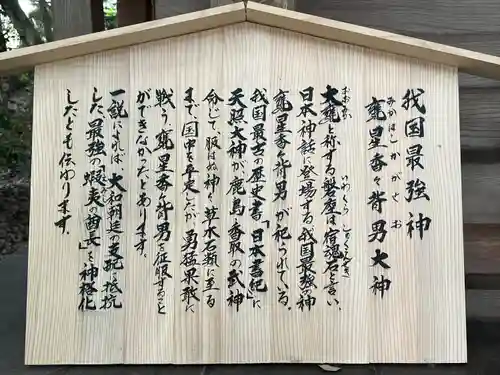 我国最強神
甕星香々背男大神
みかほしかがせお
大甕と称する磐座は宿魂石と言い、
おおみか
いわくら
しゅくこんせき
日本神話に登場する、我国最強の神
甕星香々背男が祀られている。
我国最古の歴史書「日本書紀」に
天照大神が鹿島・香取の武神に
命じて、服はぬ神々、草木石類に至る
まで、国中を平定したが、勇猛果敢に
戦う甕星香々背男を征服すること
ができなかったとあります。
一説によれば、大和朝廷の支配に抵抗
した最強の「蝦夷の酋長」を神格化
したとも伝わります。